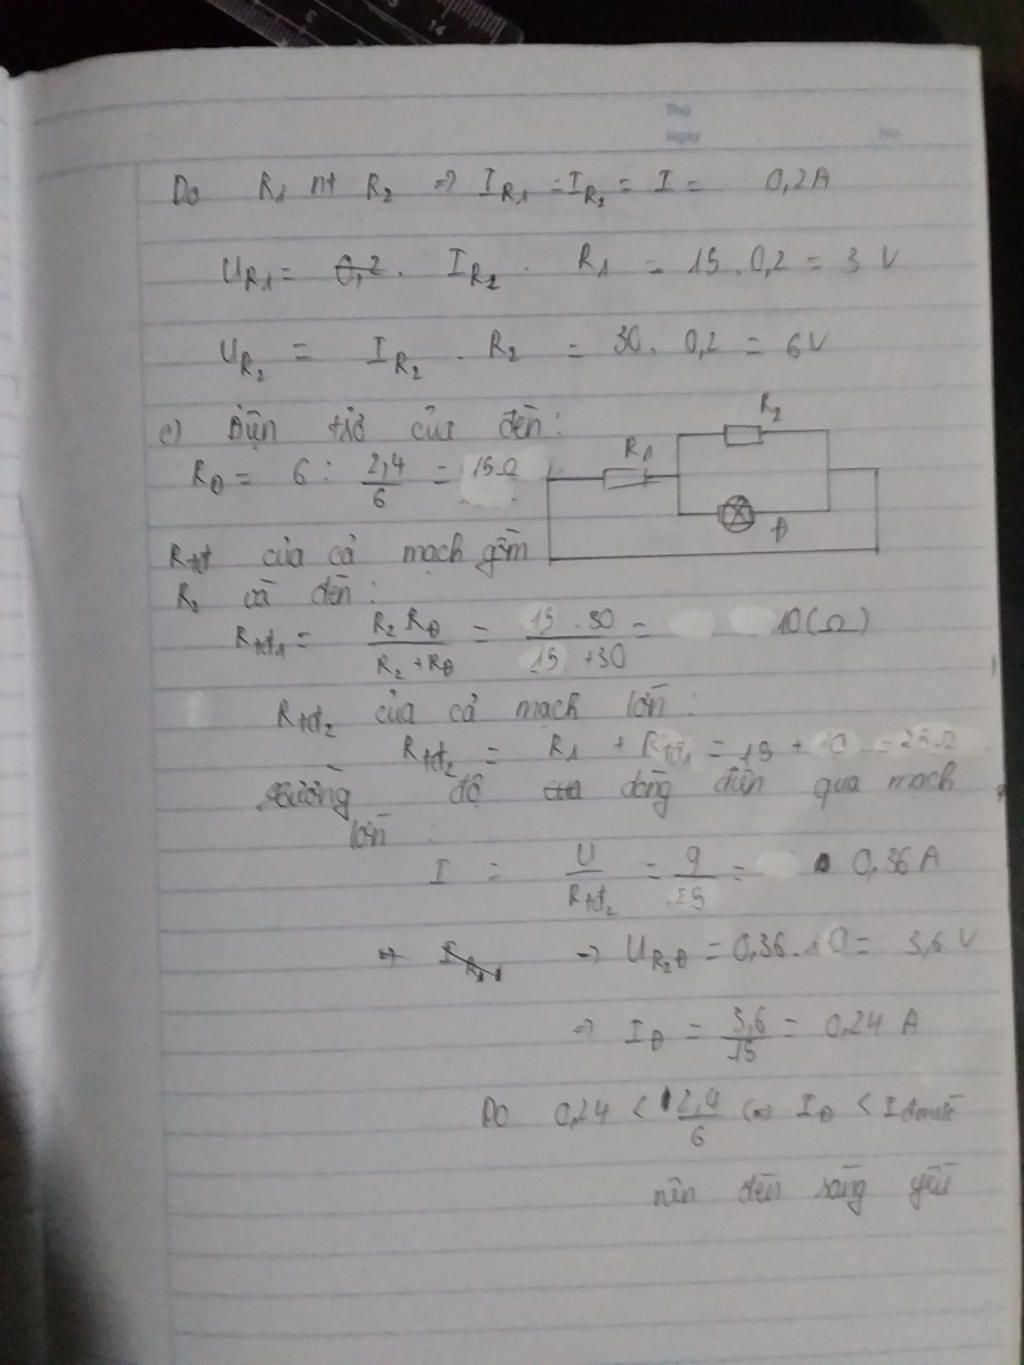 14
Thứ
Ngày
No.
Do R1 nt R2 => I R1 = I R2 = I = 0,2A
U R1 = 0,2 . I R2 . R1 = 15 . 0,2 = 3 V
U R2 = I R2 . R2 = 30 . 0,2 = 6V
c) Điện trở của đèn:
RĐ = 6 : 2,4/6 = 15Ω
R1
R2
Đ
Rtđ của cả mạch gồm
R2 và đèn:
Rtđ1 = R2 RĐ / R2 + RĐ = 15 . 30 / 15 + 30 = 10(Ω)
Rtđ2 của cả mạch lớn:
Rtđ2 = R1 + Rtđ1 = 15 + 10 = 25Ω
cường độ dòng điện qua mạch
lớn :
I = U / Rtđ2 = 9 / 25 = 0,36 A
=> I R1 => U R2Đ = 0,36 . 10 = 3,6 V
=> IĐ = 3,6 / 15 = 0,24 A
Do 0,24 < 2,4/6 (=>) IĐ < I
nên đèn sáng yếu